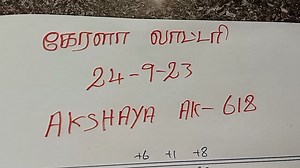 கேரளா லாட்டரி
24-9-23
AKSHAYA AK-618
+6 +1 +8